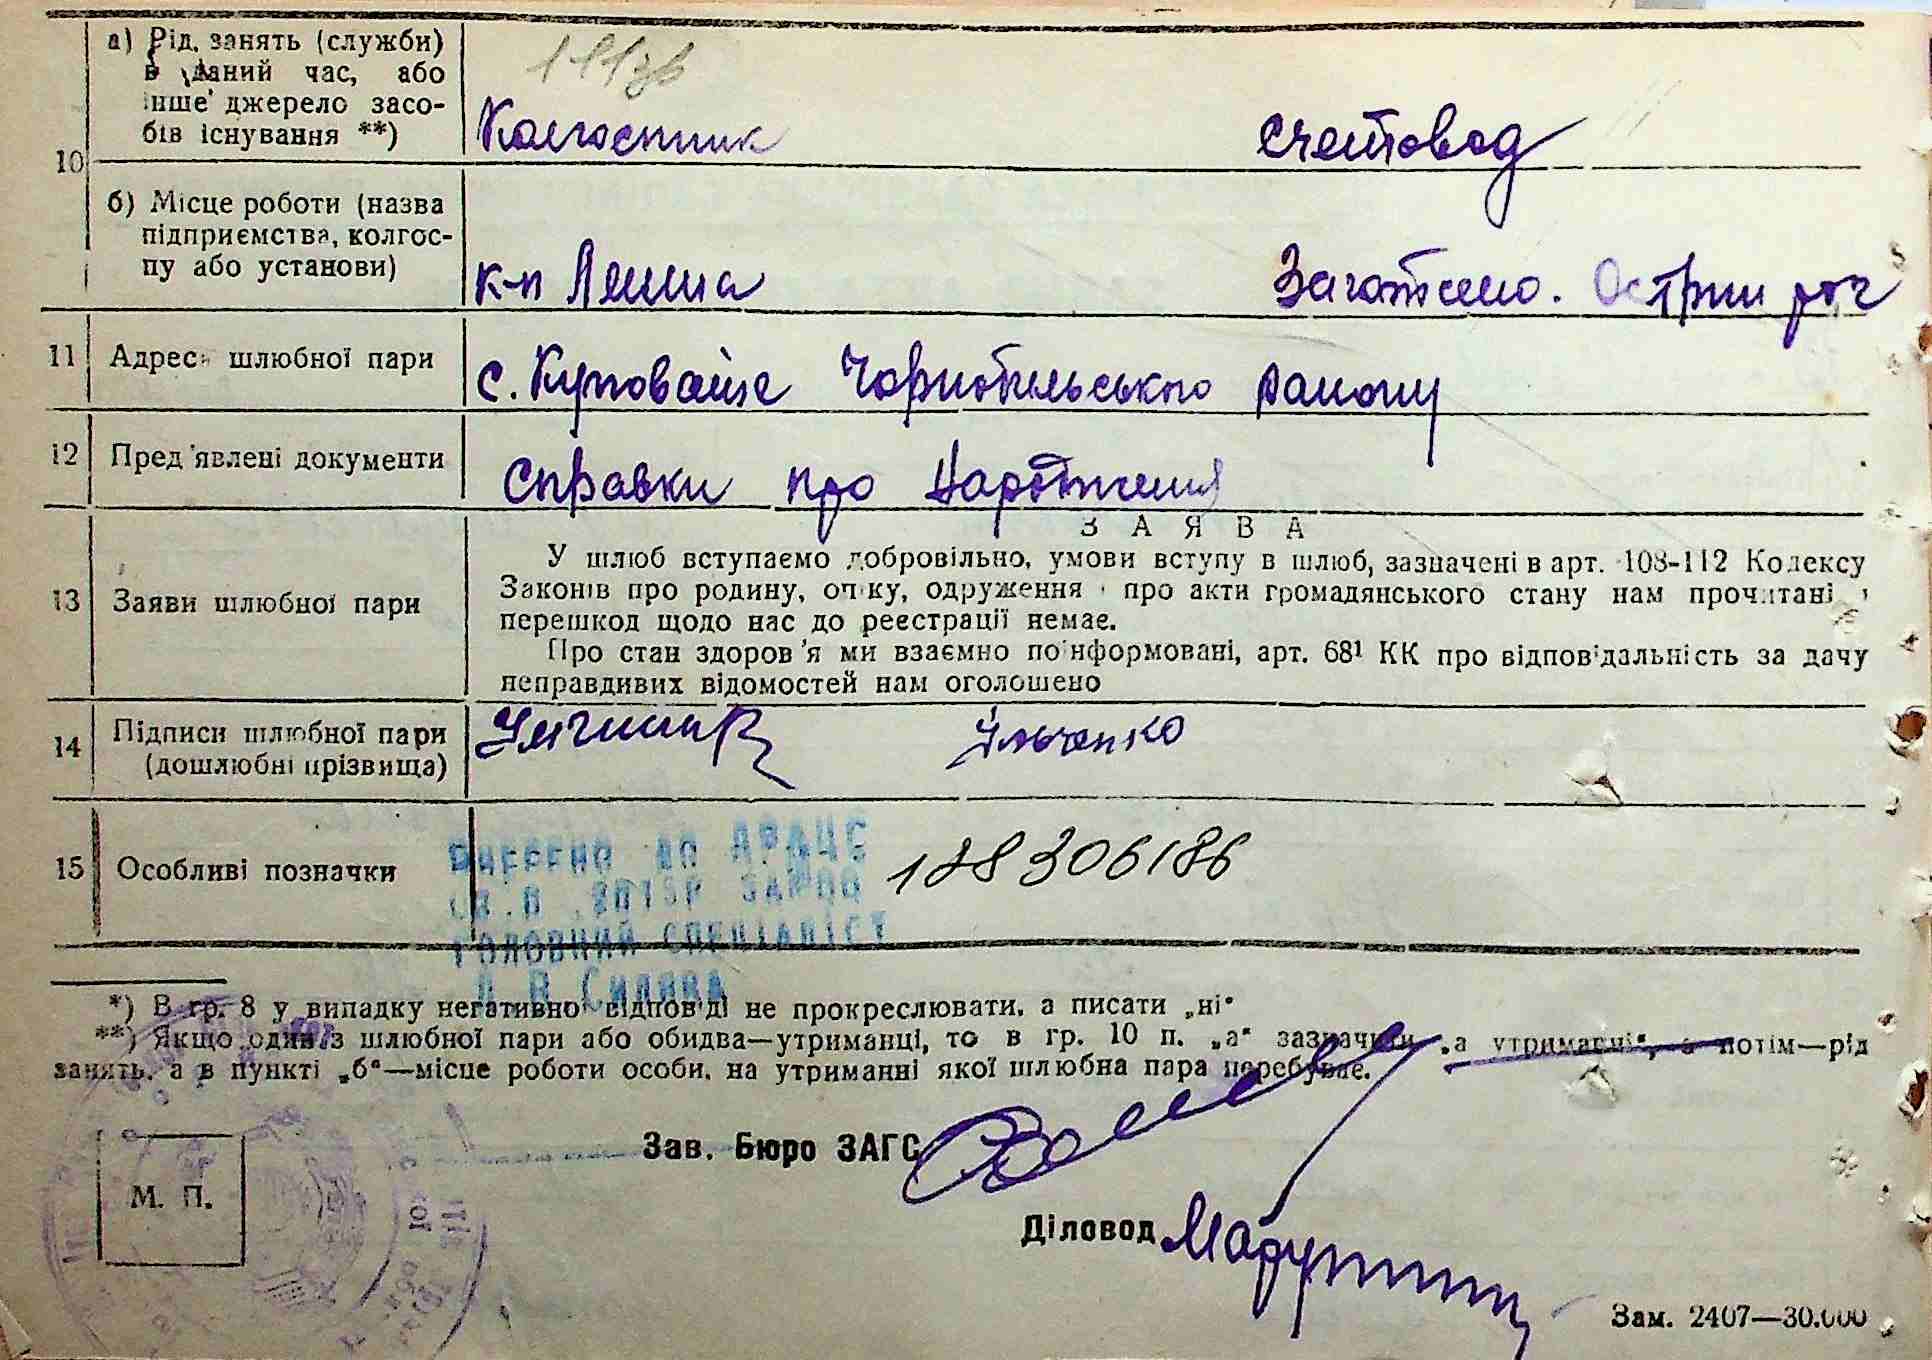 а) Рід. занять (служби)
в даний час, або
інше джерело засо-
бів існування **)
Колгоспник счетовод
10
б) Місце роботи (назва
підприємства, колгос-
пу або установи)
к-п Леніна Заготсено.
11 Адреса шлюбної пари с. Куповате Чорнобильського району
12 Пред'явлені документи Справки про народження
З А Я В А
У шлюб вступаємо добровільно, умови вступу в шлюб, зазначені в арт. 108-112 Кодексу
Законів про родину, опіку, одруження і про акти громадянського стану нам прочитані і
перешкод щодо нас до реєстрації немає.
13 Заяви шлюбної пари
Про стан здоров'я ми взаємно поінформовані, арт. 68¹ КК про відповідальність за дачу
неправдивих відомостей нам оголошено
14 Підписи шлюбної пари
(дошлюбні прізвища)
Ільченко
15 Особливі позначки 188306186
Внесено до ДРАЦС
головний спеціаліст
*) В гр. 8 у випадку негативної відповіді не прокреслювати, а писати „ні“
**) Якщо один з шлюбної пари або обидва—утриманці, то в гр. 10 п. „а“ зазначити „а утриманні“, а потім—рід
занять, а в пункті „б“—місце роботи особи, на утриманні якої шлюбна пара перебуває.
Зав. Бюро ЗАГС
М. П.
Діловод
Зам. 2407—30.000